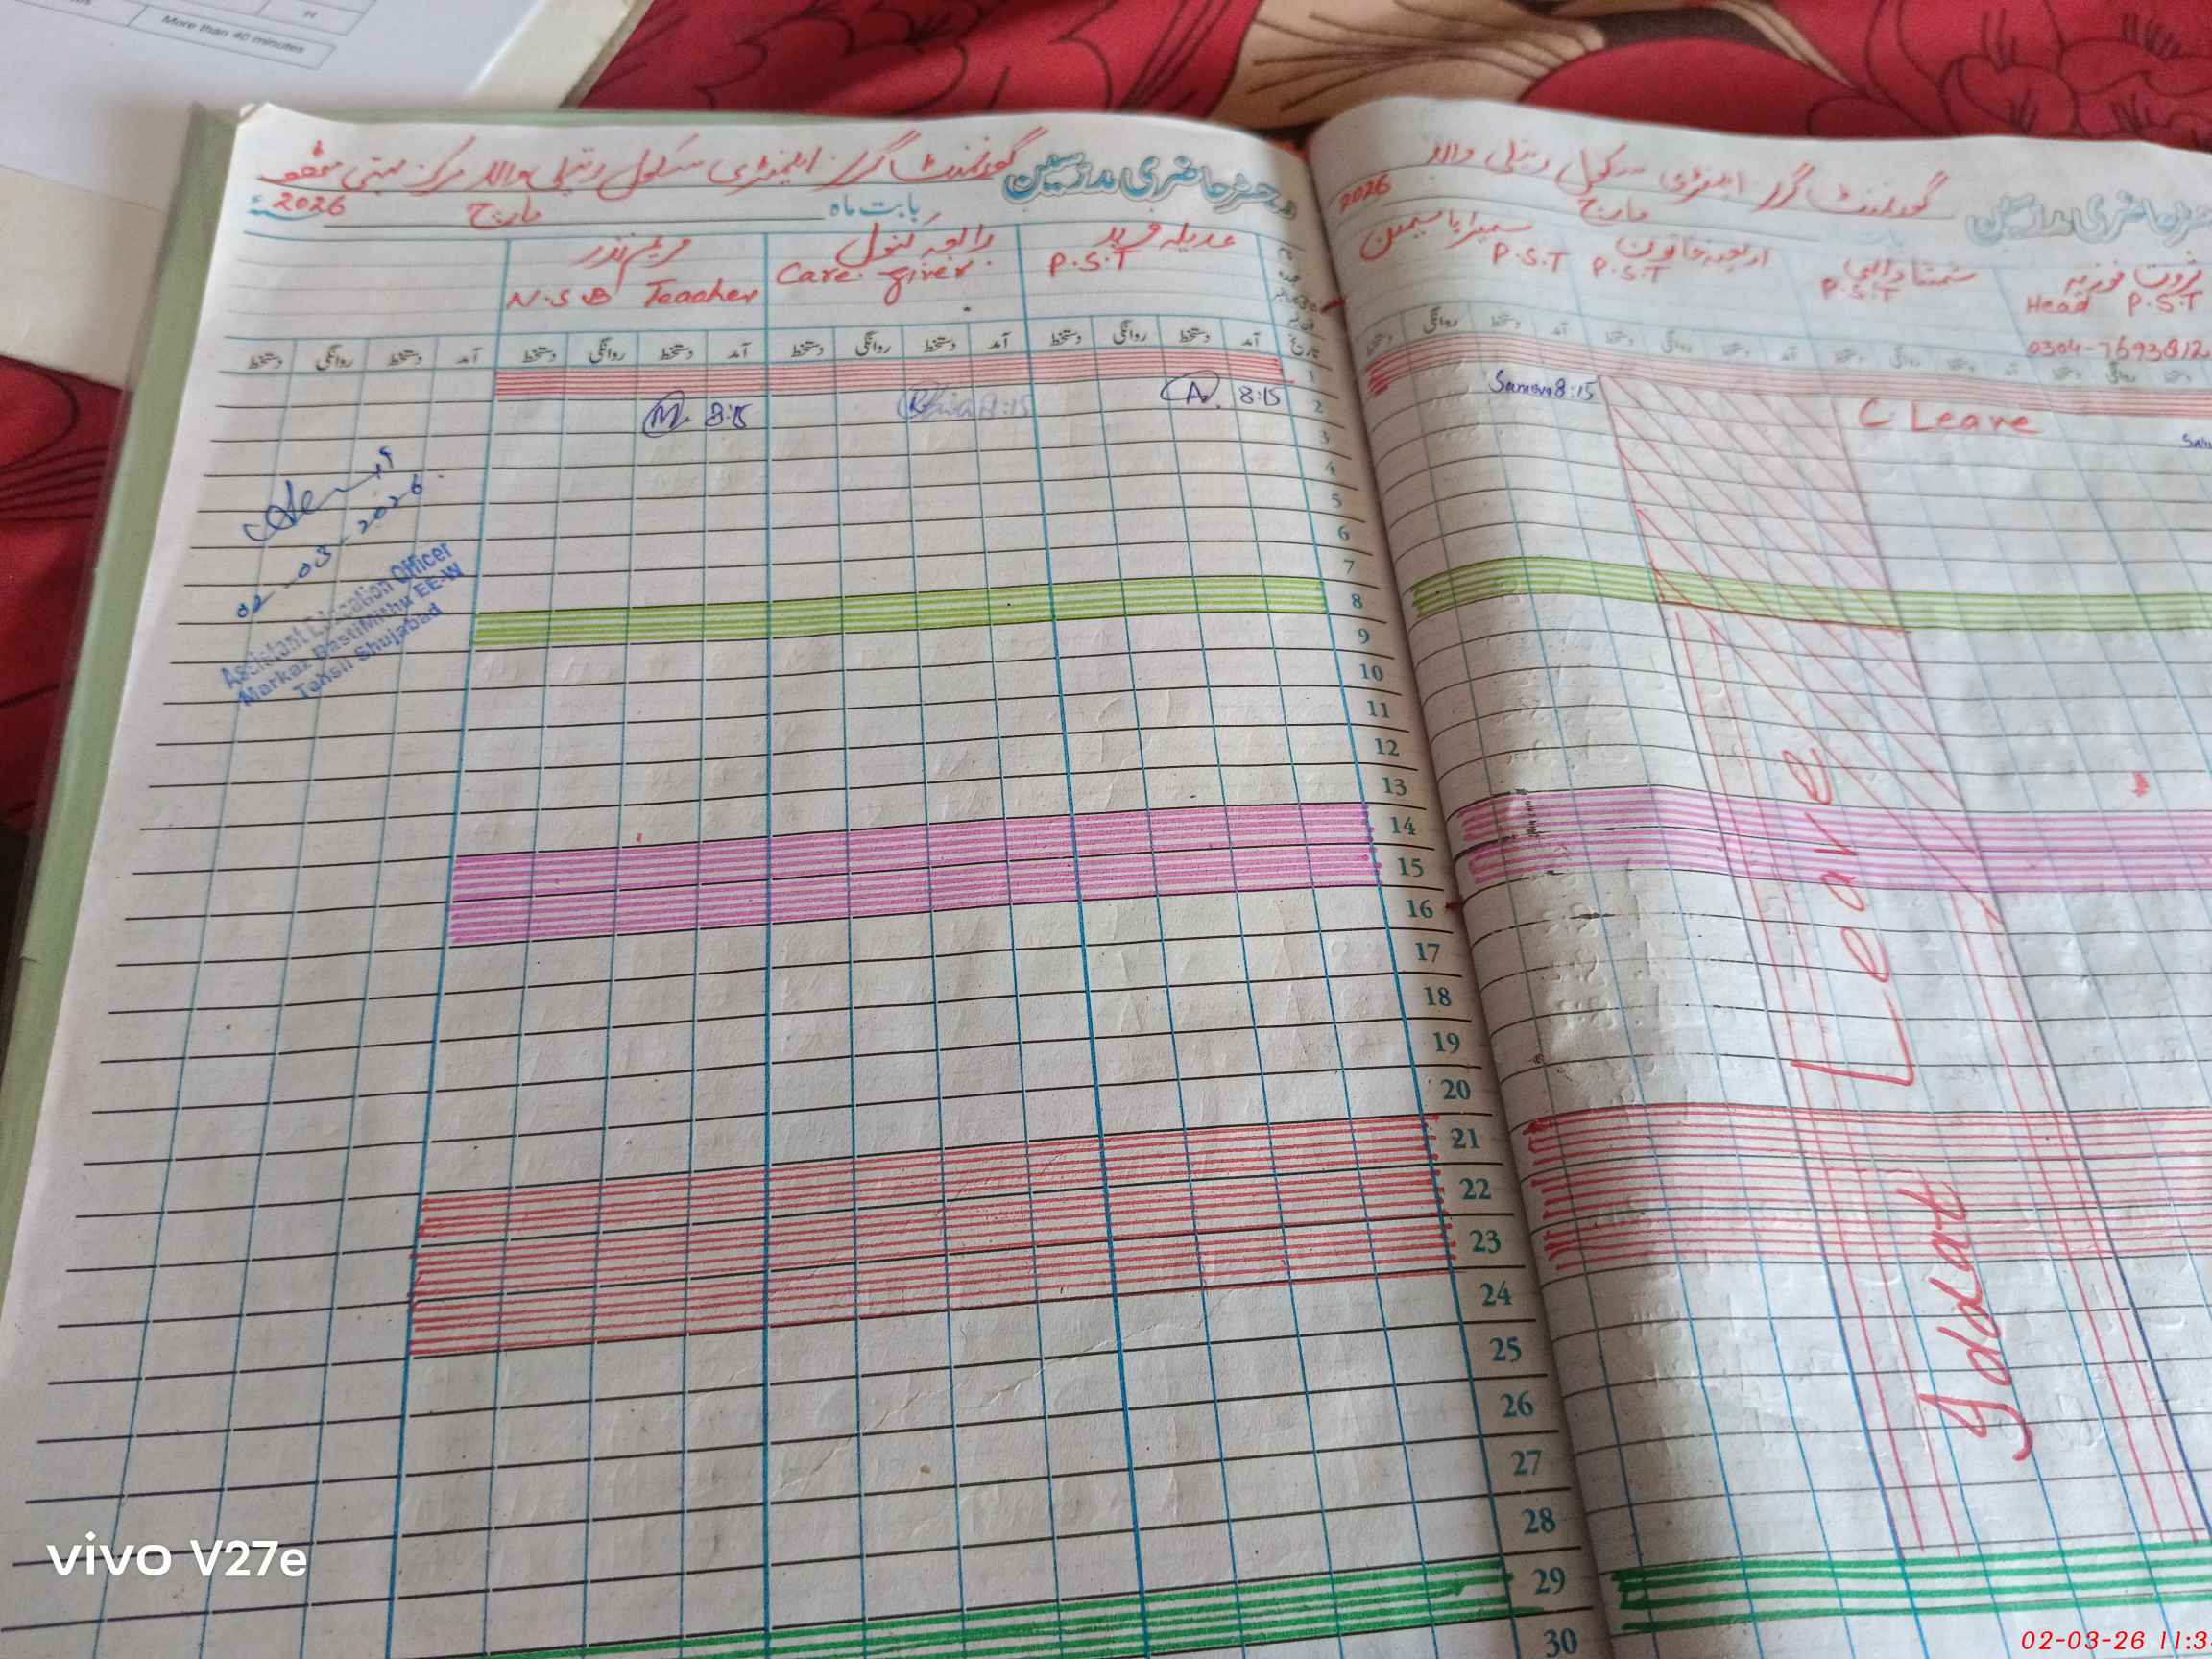 More than 40 minutes
گورنمنٹ گرلز ایلیمنٹری سکول
رجسٹر حاضری مدرسین
2026
مارچ
بابت ماہ
مریم نذر
رابعہ کنول
عدیلہ فرید
N.S.B Teacher
Care giver
P.S.T
دستخط روانگی دستخط آمد
دستخط روانگی دستخط آمد
دستخط روانگی دستخط آمد
تاریخ
8:15
8:15
A 8:15
02-03-2026
Assistant Education Officer
Markaz BastiMithu EE-W
Tehsil Shujabad
1
2
3
4
5
6
7
8
9
10
11
12
13
14
15
16
17
18
19
20
21
22
23
24
25
26
27
28
29
30
گورنمنٹ گرلز ایلیمنٹری سکول
2026
مارچ
سمیرا یاسمین
P.S.T
P.S.T
P.S.T
ثروت فوزیہ
Head P.S.T
0304-7693812
روانگی دستخط آمد
8:15
C Leave
Leave
Iddat
vivo V27e
02-03-26 11:3